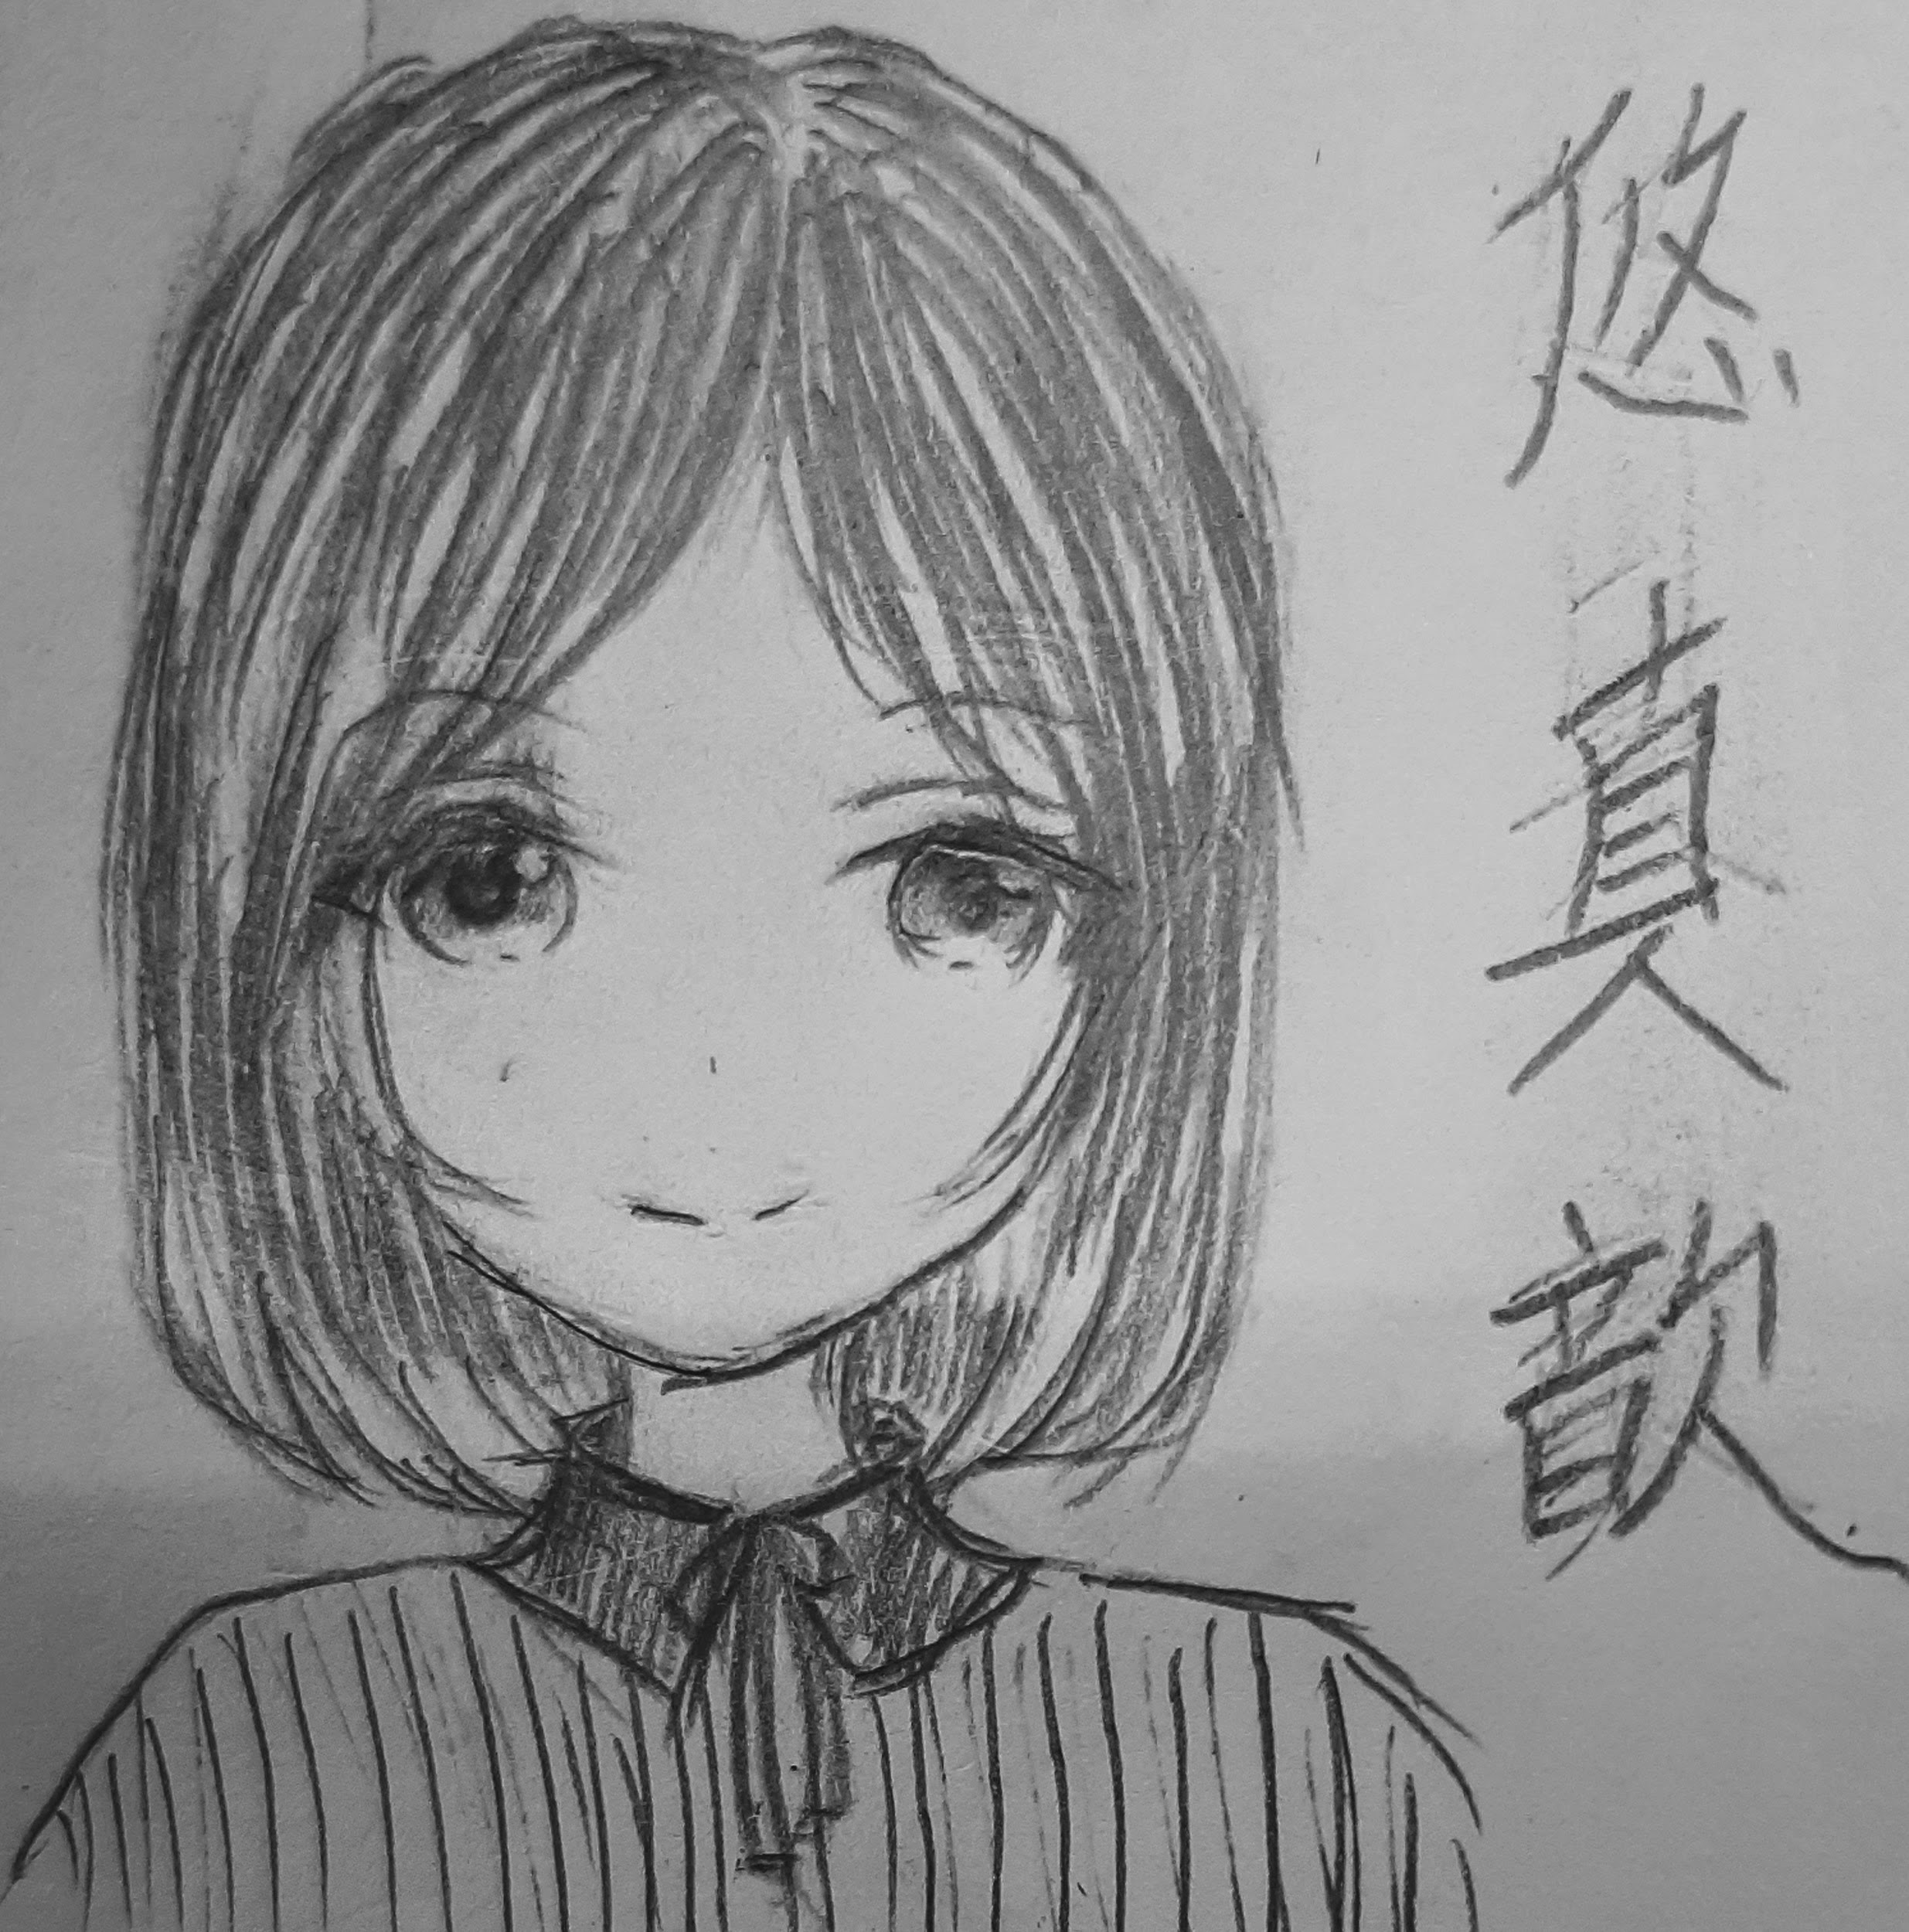 悠真歆